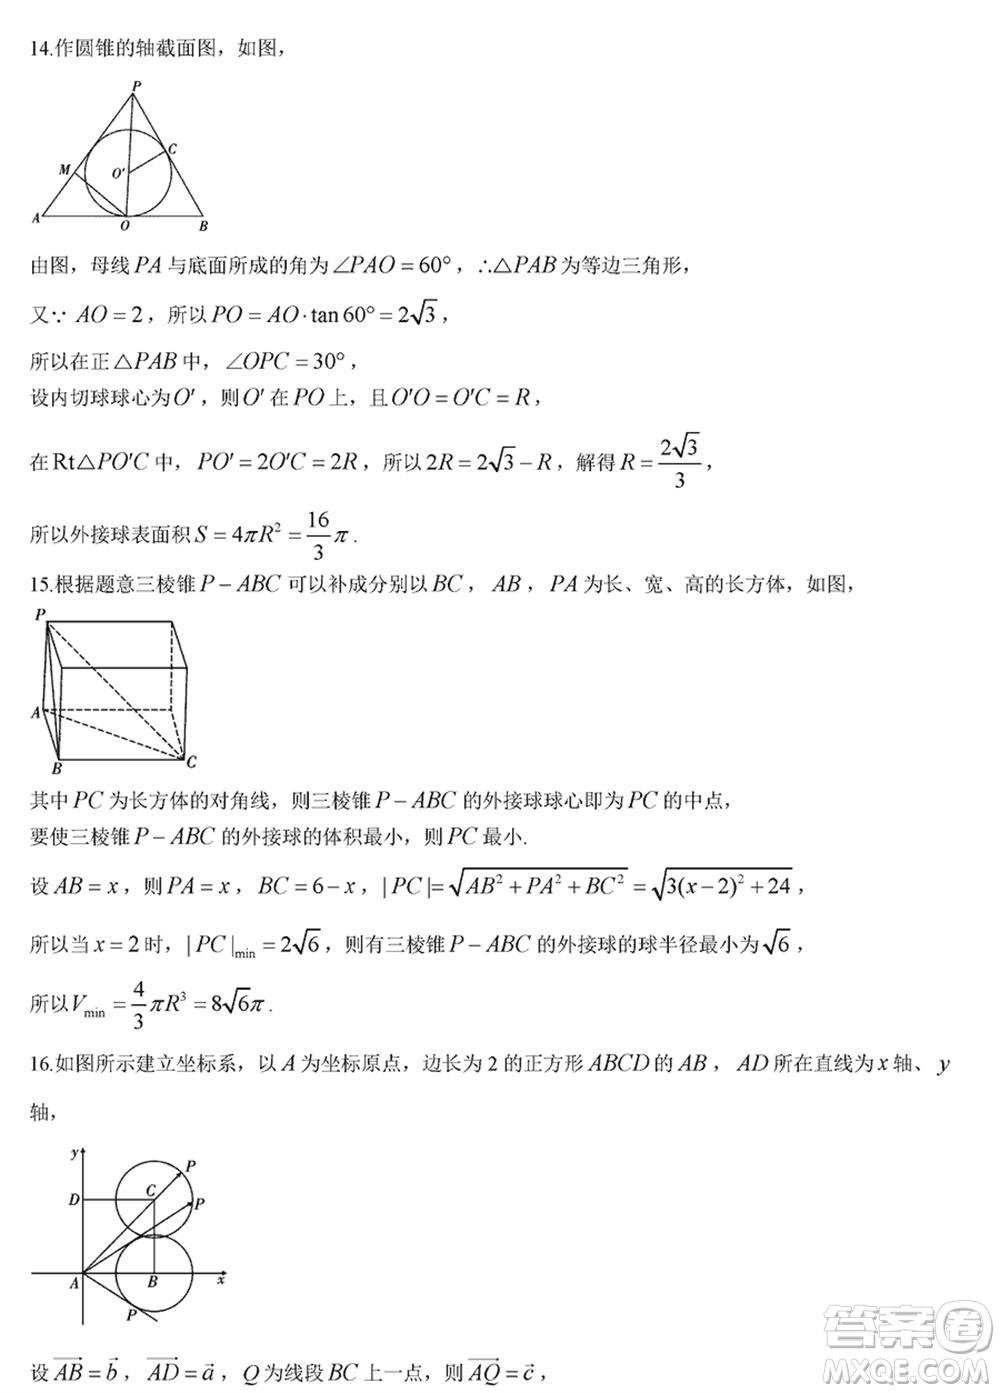 14.作圆锥的轴截面图，如图，
P
M
O′
C
A
O
B
由图，母线 PA 与底面所成的角为∠PAO = 60°，∴△PAB 为等边三角形，
又∵ AO = 2，所以 PO = AO·tan 60° = 2√3，
所以在正△PAB 中，∠OPC = 30°，
设内切球球心为O′，则O′ 在 PO 上，且O′O = O′C = R，
在Rt△PO′C 中，PO′ = 2O′C = 2R，所以 2R = 2√3 − R，解得 R = 2√3/3，
所以外接球表面积 S = 4πR² = 16/3 π .
15.根据题意三棱锥 P − ABC 可以补成分别以 BC，AB，PA 为长、宽、高的长方体，如图，
P
A
B
C
其中 PC 为长方体的对角线，则三棱锥 P − ABC 的外接球球心即为 PC 的中点，
要使三棱锥 P − ABC 的外接球的体积最小，则 PC 最小.
设 AB = x，则 PA = x，BC = 6 − x，| PC |= √(AB² + PA² + BC²) = √(3(x − 2)² + 24)，
所以当 x = 2 时，| PC |min = 2√6，则有三棱锥 P − ABC 的外接球的球半径最小为√6，
所以Vmin = 4/3 πR³ = 8√6π .
16.如图所示建立坐标系，以 A 为坐标原点，边长为 2 的正方形 ABCD 的 AB，AD 所在直线为 x 轴、y
轴，
y
P
D
C
P
A
B
x
P
设 AB→ = b→，AD→ = a→，Q 为线段 BC 上一点，则 AQ→ = c→，
答案卷
MXQE.COM